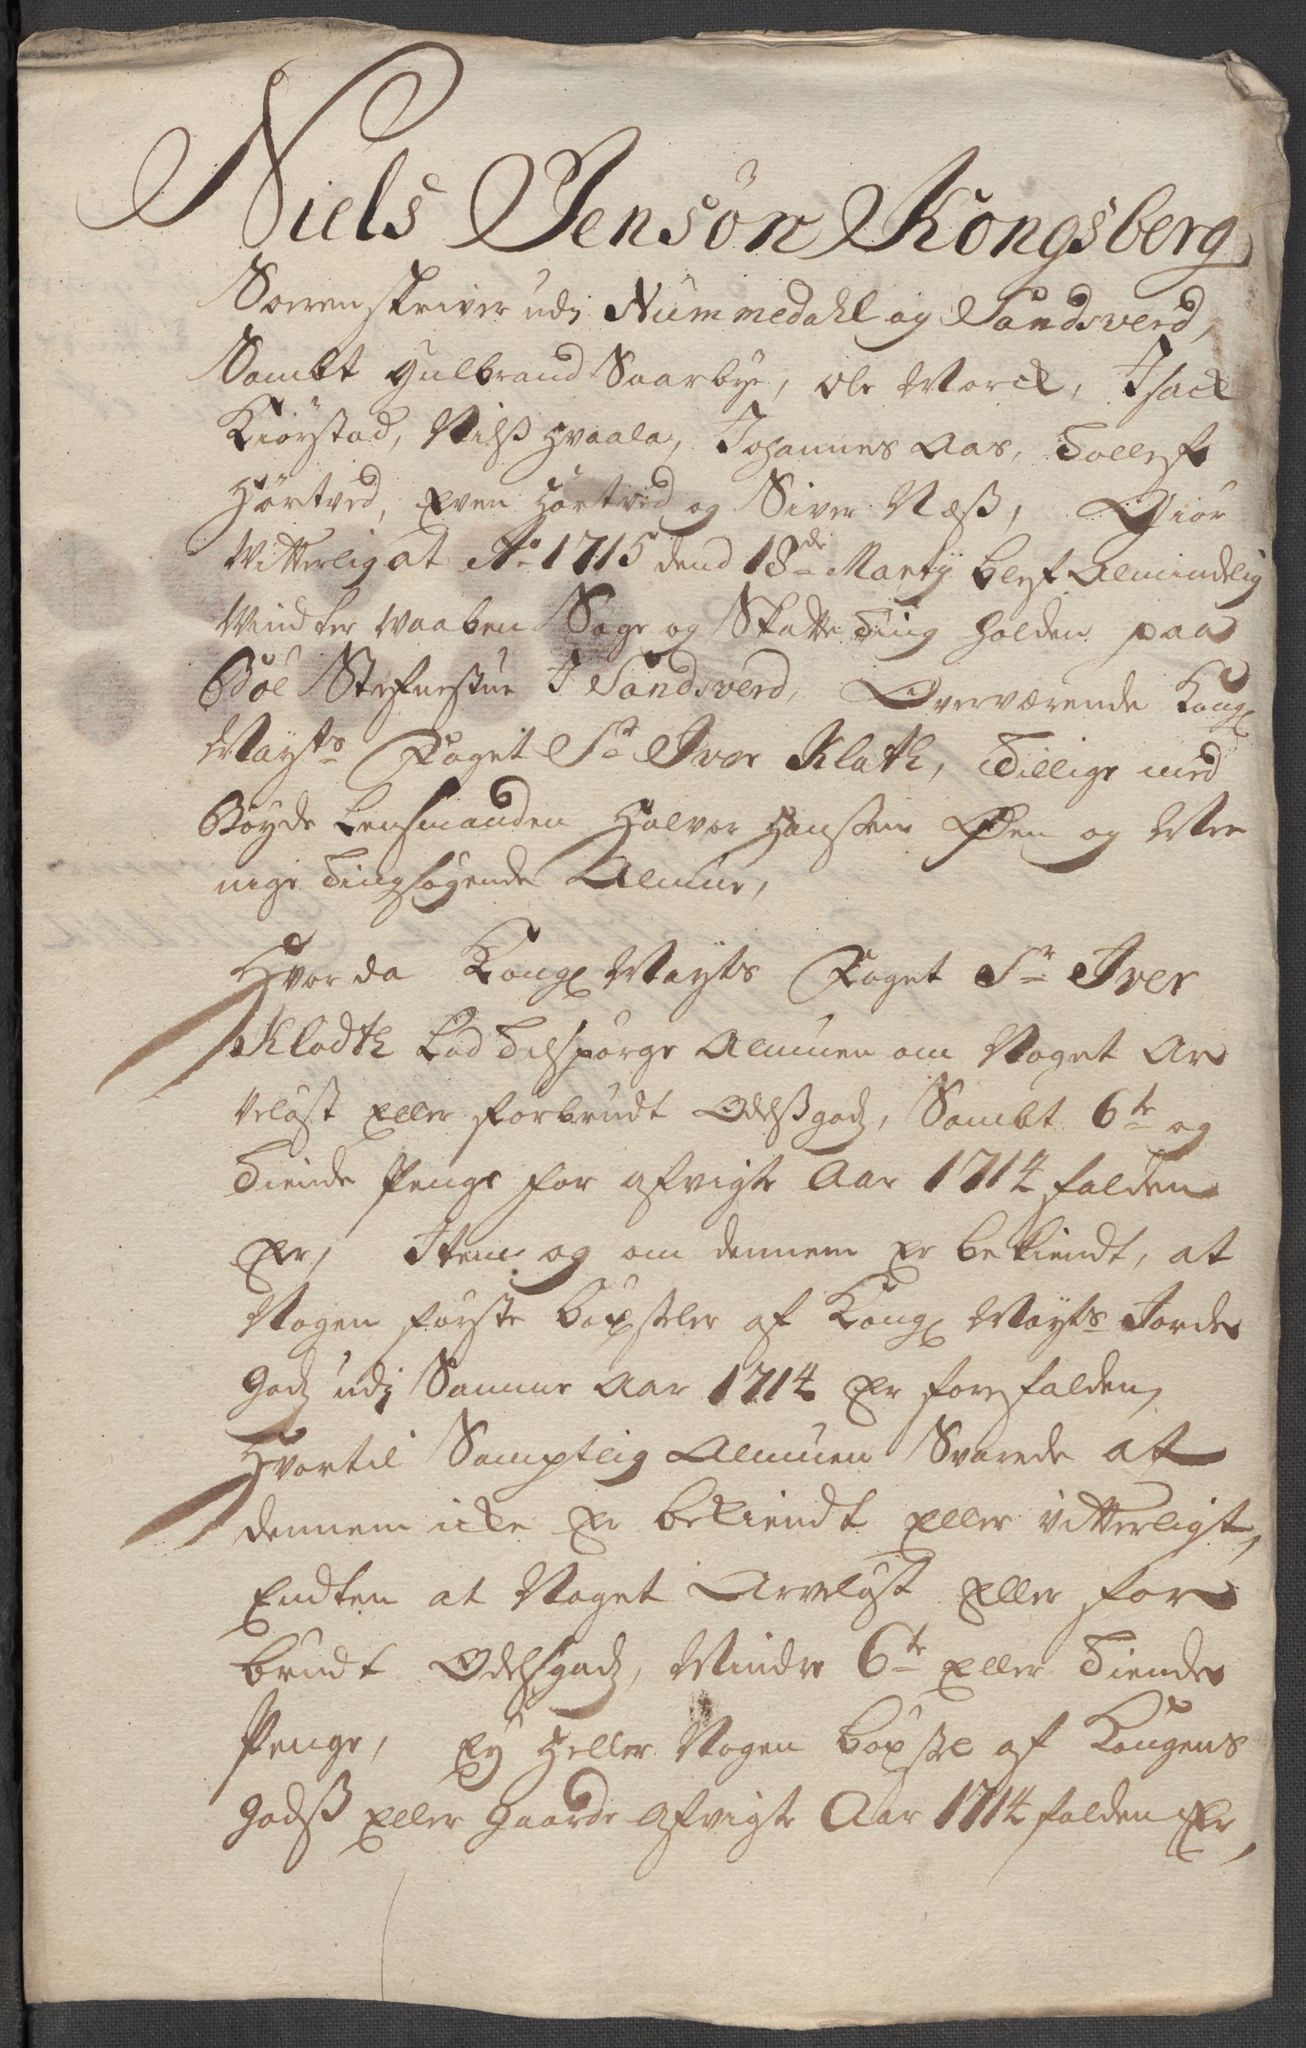 Niels Jensön Kongsberg
Sorenskriver udj Nummedahl og Sandsverd,
Sambt Gulbrand Saarbye, Ole Morck, Isack
Kiörstad, Nilß Hvaala, Johannes Aas, Tollef
Hörtved, Even Hörtved og Siver Næß, Giör
Vitterligt at Ao 1715 dend 18de Martij blef Almindelig
Windter Waaben Sage og Skatte Ting holden paa
Böe Stefnestue I Sandsverd, Overværende Kongl
Mayts Foget Sr Iver Klath, Tillige med
Böyde Lensmanden Halvor Hanssen Öen og Mee
nige Tingsögende Almue,
Hvor da Kongl Mayts Foget Sr Iver
Klodth Lod Tilspörge Almuen om Noget Ar
velöst Eller forbrudt Odelßgodz, Sambt 6te og
Tiende Penge for afvigte Aar 1714 falden
Er, Item og om dennem Er bekiendt, at
Nogen förste böxseler af Kongl Mayts Jorde
godz udj Samme Aar 1714 Er forefalden,
Hvortil Samptlig Almuen Svarede at
dennem icke Er bekiendt Eller vitterligt,
Endten at Noget Arvelöst Eller for
brudt Odelsgodz, Mindre 6te Eller Tiende
Penge, Ey Heller Nogen böxsle af Kongens
godß Eller gaarde afvigte Aar 1714 falden Er,